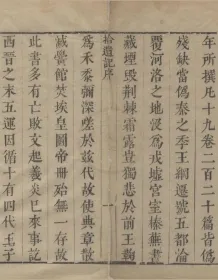 年所撰凡十九卷二百二十篇皆爲
殘缺當僞秦之季王綱遷號五都淪
覆河洛之地沒爲戎墟宮室榛蕪書
藏堙毀荊棘霜露豈獨悲於前王鞠
拾遺記序
一
爲禾黍彌深嗟於茲代故使典章散
滅黌館焚埃皇圖帝冊殆無一存故
此書多有亡散文起羲炎已來事訖
西晉之末五運因循十有四代王子